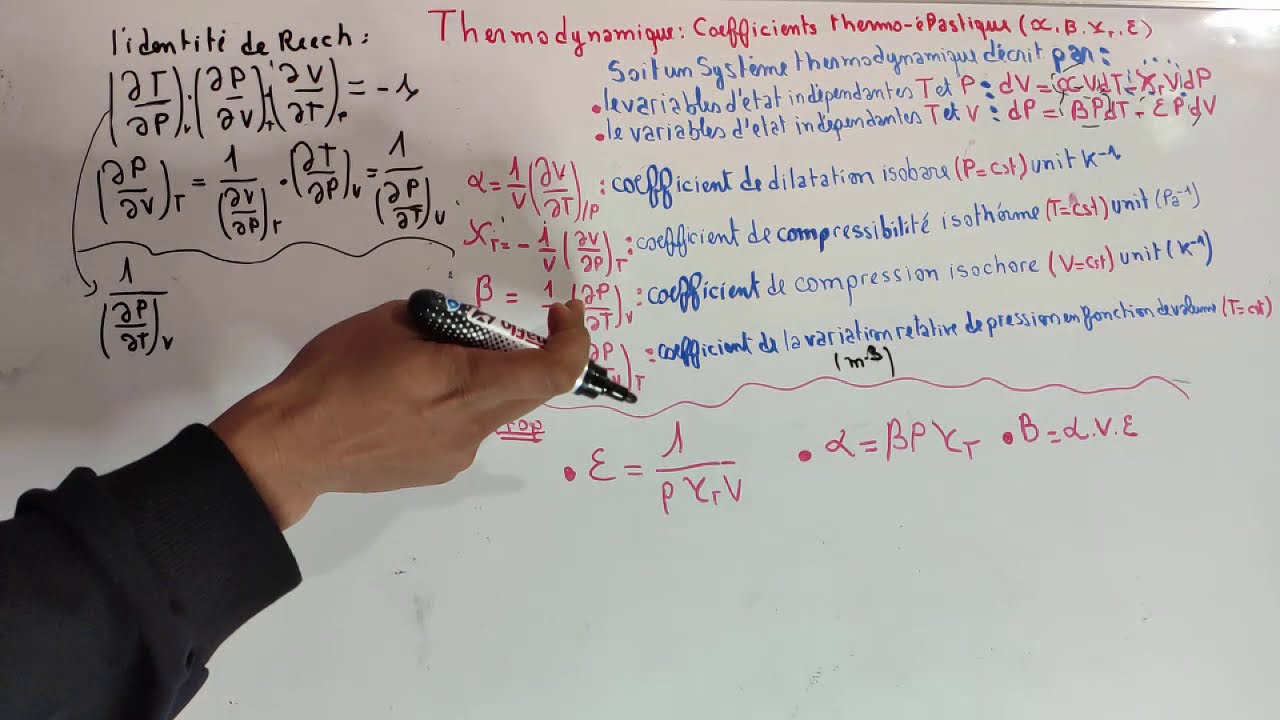 Thermodynamique: Coefficients thermo-élastique (α.β.χT.ε)
l'identité de Reech:
(∂T/∂P)V.(∂P/∂V)T.(∂V/∂T)P = -1
(∂P/∂V)T = 1/(∂V/∂P)T . (∂T/∂P)V = 1/(∂P/∂T)V
1/(∂P/∂T)V
Soit un Système thermodynamique décrit par:
• le variables d'état indépendantes T et P: dV = αVdT - χTVdP
• le variables d'état independantes T et V: dP = βPdT - εPdV
α = 1/V (∂V/∂T)/P : coefficient de dilatation isobare (P=cst) unit K-1
χT = - 1/V (∂V/∂P)T : coefficient de compressibilité isothérme (T=cst) unit (Pa-1)
β = 1 (∂P/∂T)V : coefficient de compression isochore (V=cst) unit (K-1)
∂P T : coefficient de la variation relative de pression en fonction de volume (T=cst)
(m-3)
• ε = 1/PχTV • α = βPχT • β = α.V.ε